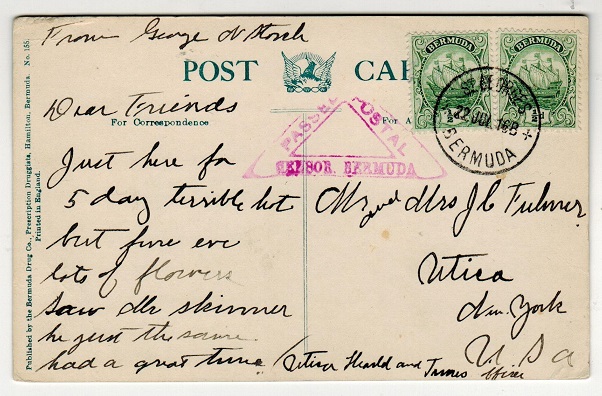 From George N Storch
POST CAR
Dear Friends
For Correspondence
For A
Just here for
5 day terrible hot
but fine eve
lots of flowers
Saw Mr Skinner
he just the same.
had a great time
Mr and Mrs J C Fulmer
Utica
New York
U. S a
Utica Herald and Times office
PASSED POSTAL
CENSOR. BERMUDA
BERMUDA
BERMUDA
ST GEORGES
22 JUL 16 B
BERMUDA
Published by the Bermuda Drug Co., Prescription Druggists, Hamilton, Bermuda. No. 155.
Printed in England.